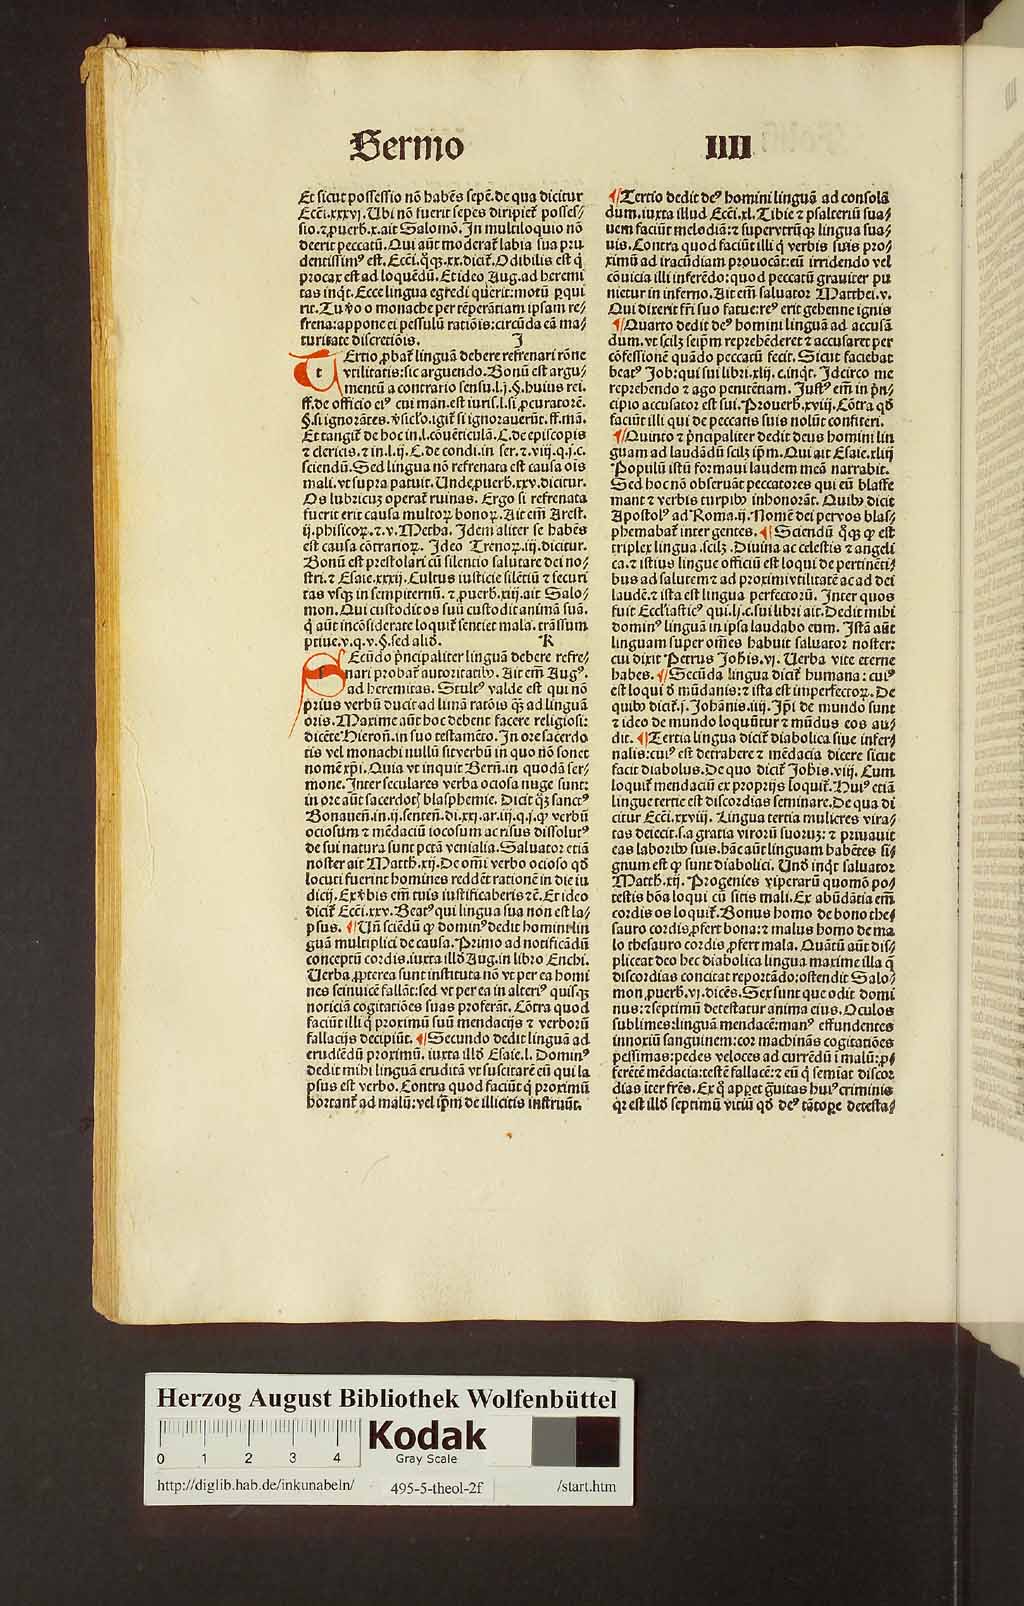 Sermo
IIII
Et sicut possessio nō habēs sepē. de qua dicitur
Eccī.xxxvj. Ubi nō fuerit sepes diripiet᷑ posses⸗
sio.⁊.puerb.x. ait Salomō. In multiloquio nō
deerit peccatū. Qui aūt moderat᷑ labia sua pru
dentissimꝰ est. Eccī.qͦqꝫ.xx.dicit᷑. Odibilis est q̇
procax est ad loquēdū. Et ideo Aug. ad heremi
tas inqͥt. Ecce lingua egredi querit: motū ꝑqui
rit. Tu v̓o o monache per tēperātiam ipsam re⸗
frena: appone ei pessulū ratiōis: circūda eā ma⸗
turitate discretiōis. I
TErtio ꝓbat᷑ linguā debere refrenari rōne
vtilitatis: sic arguendo. Bonū est argu⸗
mentū a contrario sensu. l.j.§. huius rei.
ff. de officio eiꝰ cui man. est iuris. l. si ꝓcuratorē.
§. si ignorātes. v̓siclo. igit᷑ si ignorauerūt. ff. mā.
Et tangit᷑ de hoc in. l. cōuēticulā. C. de episcopis
⁊ clericis. ⁊ in. l.ij. C. de condi. in ser. ⁊.viij.q.j.c.
sciendū. Sed lingua nō refrenata est causa oīs
mali. vt supra patuit. Unde ꝓuerb.xxv. dicitur.
Os lubricuꝫ operat᷑ ruinas. Ergo si refrenata
fuerit erit causa multoꝝ bonoꝝ. Ait em̄ Arest.
ij. phisicoꝝ. ⁊.v. Metha. Idem aliter se habēs
est causa cōtrarioꝝ. Ideo Trenoꝝ.iij. dicitur.
Bonū est prestolari cū silentio salutare dei no⸗
stri. ⁊ Esaie.xxxij. Cultus iusticie silētiū ⁊ securi
tas vsqꝫ in sempiternū. ⁊ ꝓuerb.xiij. ait Salo⸗
mon. Qui custodit os suū custodit animā suā.
q̇ aūt incōsiderate loquit᷑ sentiet mala. trāssum
ptiue.v.q.v.§. sed aliđ. K
SEcūdo pͥncipaliter linguā debere refre⸗
nari probat᷑ autoritatibꝰ. Ait em̄ Augꝰ.
ad heremitas. Stultꝰ valde est qui nō
prius verbū ducit ad limā ratōis qͣꝫ ad linguā
oris. Maxime aūt hoc debent facere religiosi:
dicēte Hieron. in suo testamēto. In ore sacerdo
tis vel monachi nullū sit verbū in quo nō sonet
nomē xp̄i. Quia vt inquit Bern̄. in quodā ser⸗
mone. Inter seculares verba ociosa nuge sunt:
in ore aūt sacerdotꝭ blasphemie. Dicit qͦqꝫ sanctꝰ
Bonauen̄. in.ij. senten̄. di.xxj. ar.iij.q.j. ꝙ verbū
ociosum ⁊ mēdaciū iocosum ac risus dissolutꝰ
de sui natura sunt pctā venialia. Saluator etiā
noster ait Matth.xij. De om̄i verbo ocioso qđ
locuti fuerint homines reddēt rationē in die iu
dicij. Ex v̓bis em̄ tuis iustificaberis ⁊c̄. Et ideo
dicit᷑ Eccī.xxv. Beatꝰ qui lingua sua non est la⸗
psus. ¶ Uñ sciēdū ꝙ dominꝰ dedit homini lin
guā multiplici de causa. Primo ad notificādū
conceptū cordis. iuxta illđ Aug. in libro Enchi.
Uerba ꝓpterea sunt instituta nō vt per ea homi
nes seinuicē fallāt: sed vt per ea in alteriꝰ quisqꝫ
noticiā cogitatiōes suas proferāt. Cōtra quod
faciūt illi q̇ proximū suū mendacijs ⁊ verborū
fallacijs decipiūt. ¶ Secundo dedit linguā ad
erudiēdū proximū. iuxta illđ Esaie.l. Dominꝰ
dedit mihi linguā eruditā vt suscitarē eū qui la
psus est verbo. Contra quod faciūt q̇ proximū
hortant᷑ ad malū: vel ip̄m de illicitis instruūt.
¶ Tertio dedit deꝰ homini linguā ad consolā
dum. iuxta illud Eccī.xl. Tibie ⁊ psalteriū sua⸗
uem faciūt melodiā: ⁊ super vtrūqꝫ lingua sua⸗
uis. Contra quod faciūt illi q̇ verbis suis pro⸗
ximū ad iracūdiam prouocāt: eū irridendo vel
cōuicia illi inferēdo: quod peccatū grauiter pu
nietur in inferno. Ait em̄ saluator Matthei.v.
Qui dixerit fr̄i suo fatue: reꝰ erit gehenne ignis
¶ Quarto dedit deꝰ homini linguā ad accusā
dum. vt scilꝫ seip̄m reprehēderet ⁊ accusaret per
cōfessionē quādo peccatū fecit. Sicut faciebat
beatꝰ Job: qui sui libri.xlij.c. inqͥt. Idcirco me
reprehendo ⁊ ago penitētiam. Justꝰ em̄ in pͥn⸗
cipio accusator est sui. Prouerb.xviij. Cōtra qđ
faciūt illi qui de peccatis suis nolūt confiteri.
¶ Quinto ⁊ pͥncipaliter dedit deus homini lin
guam ad laudādū scilꝫ ip̄m. Qui ait Esaie.xliij
Populū istū formaui laudem meā narrabit.
Sed hoc nō obseruāt peccatores qui eū blasfe
mant ⁊ verbis turpibꝰ inhonorāt. Quibꝰ dicit
Apostolꝰ ad Roma.ij. Nomē dei per vos blas⸗
phemabat᷑ inter gentes. ¶ Sciendū qͦqꝫ ꝙ est
triplex lingua. scilꝫ. Diuina ac celestis ⁊ angeli
ca. ⁊ istius lingue officiū est loqui de pertinēti⸗
bus ad salutem ⁊ ad proximi vtilitatē ac ad dei
laudē. ⁊ ista est lingua perfectorū. Inter quos
fuit Ecclīasticꝰ qui.lj.c. sui libri ait. Dedit mihi
dominꝰ linguā in ipsa laudabo eum. Istā aūt
linguam super om̄es habuit saluator noster:
cui dixit Petrus Joh̄is.vj. Uerba vite eterne
habes. ¶ Secūda lingua dicit᷑ humana: cuiꝰ
est loqui đ mūdanis: ⁊ ista est imperfectoꝝ. De
quibꝰ dicit᷑.j. Johānis.iiij. Ip̄i de mundo sunt
⁊ ideo de mundo loquūtur ⁊ mūdus eos au⸗
dit. ¶ Tertia lingua dicit᷑ diabolica siue infer⸗
nalis: cuiꝰ est detrahere ⁊ mēdacia dicere sicut
facit diabolus. De quo dicit᷑ Joh̄is.viij. Cum
loquit᷑ mendaciū ex proprijs loquit᷑. Huiꝰ etiā
lingue tertie est discordias seminare. De qua di
citur Eccī.xxviij. Lingua tertia mulieres vira⸗
tas deiecit. s. a gratia virorū suoruꝫ: ⁊ priuauit
eas laboribꝰ suis. hāc aūt linguam habētes si⸗
gnum est ꝙ sunt diabolici. Unđ inqͥt saluator
Matth.xij. Progenies viperarū quomō po⸗
testis bōa loqui cū sitis mali. Ex abūdātia em̄
cordis os loquit᷑. Bonus homo de bono the⸗
sauro cordis ꝓfert bona: ⁊ malus homo de ma
lo thesauro cordis ꝓfert mala. Quātū aūt dis⸗
pliceat deo hec diabolica lingua maxime illa q̄
discordias concitat reportādo: ostendit Salo⸗
mon ꝓuerb.vj. dicēs. Sex sunt que odit domi
nus: ⁊ septimū detestatur anima eius. Oculos
sublimes: linguā mendacē: manꝰ effundentes
innoxiū sanguinem: cor machinās cogitatiōes
pessimas: pedes veloces ad currēdū ī malū: ꝓ⸗
ferētē mēdacia: testē fallacē: ⁊ eū q̇ semīat discor
dias īter fr̄es. Ex q̊ apꝑet gͣuitas huiꝰ criminis
qꝛ est illđ septimū vitiū qđ deꝰ tātoꝑe detesta⸗
Herzog August Bibliothek Wolfenbüttel
0 1 2 3 4
Kodak
Gray Scale
http://diglib.hab.de/inkunabeln/ 495-5-theol-2f /start.htm